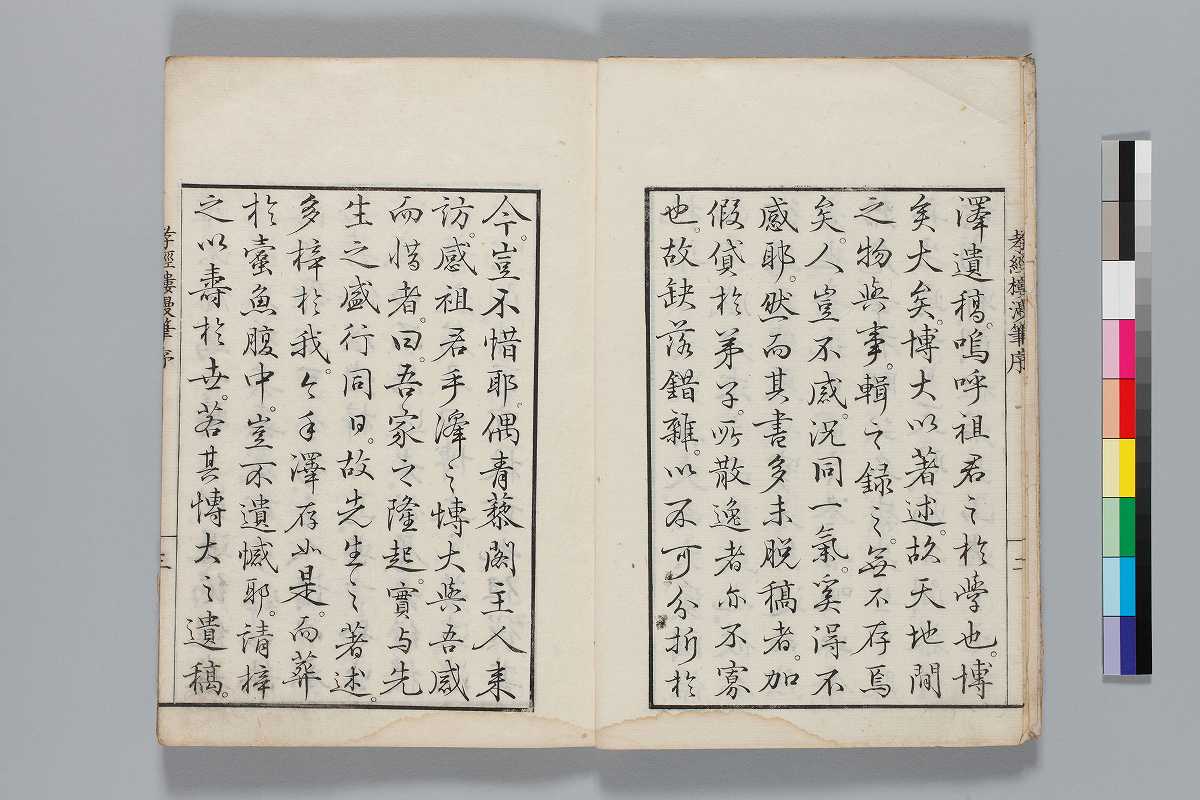 孝經樓漫筆序
二
澤遺稿。嗚呼祖君之於學也。博
矣大矣。博大以著述。故天地間
之物與事。輯之録之。無不存焉
矣。人豈不感。況同一氣。奚得不
感耶。然而其書多未脱稿者。加
假貸於弟子。所散逸者亦不寡
也。故缺落錯雜。以不可分折於
今。豈不惜耶。偶青藜閣主人来
訪。感祖君手澤之博大與吾感
而惜者。曰。吾家之隆起。實与先
生之盛行同日。故先生之著述。
多梓於我。々手澤存如是。而葬
於蠹魚腹中。豈不遺憾耶。請梓
之以壽於世。若其博大之遺稿。
孝經樓漫筆序
三